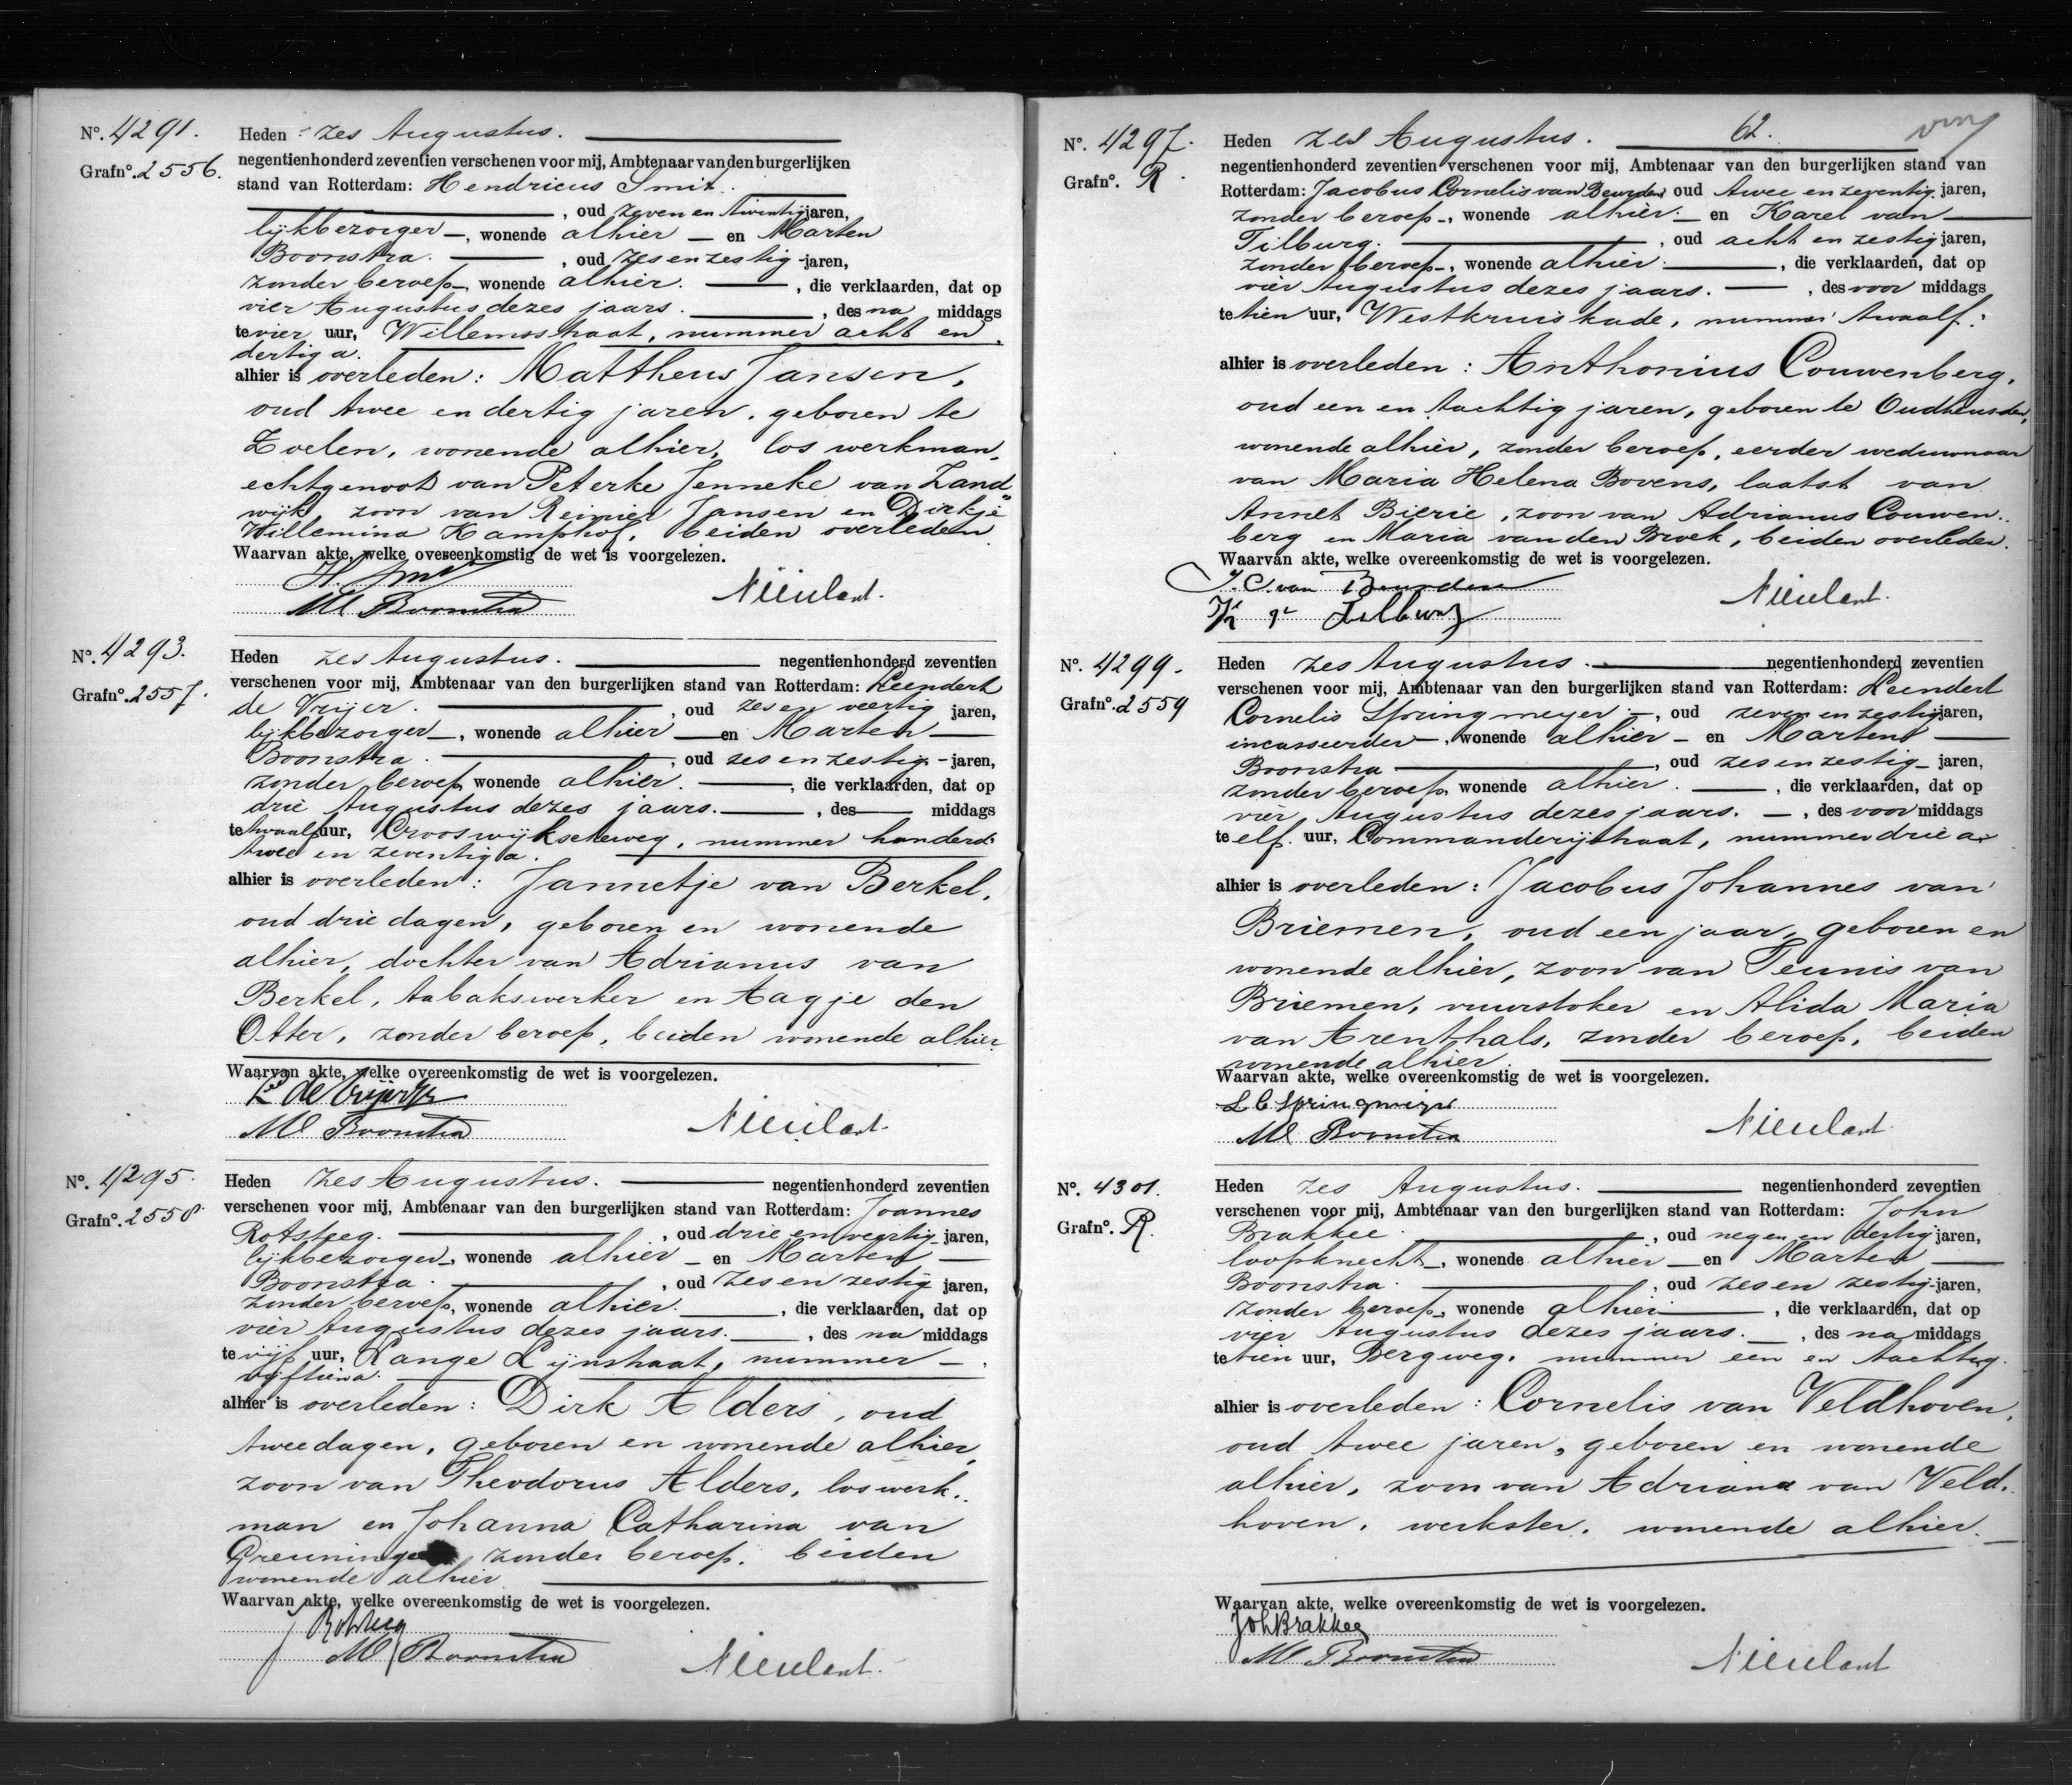 Nº. 4291.
Grafnº. 2556.
Heden zes Augustus.
negentienhonderd zeventien verschenen voor mij, Ambtenaar van den burgerlijken
stand van Rotterdam: Hendricus Smit.
, oud zeven en twintig jaren,
lijkbezorger –, wonende alhier – en Marten
Boonstra. , oud zes en zestig - jaren,
zonder beroep –, wonende alhier. , die verklaarden, dat op
vier Augustus dezes jaars. , des na middags
te vier uur, Willemsstraat, nummer acht en
dertig a.
alhier is overleden: Mattheus Jansen,
oud twee en dertig jaren, geboren te
Zoelen, wonende alhier, los werkman,
echtgenoot van Peterke Jenneke van Zand
wijk, zoon van Reinier Jansen en Dirkje
Willemina Kamphof, beiden overleden
Waarvan akte, welke overeenkomstig de wet is voorgelezen.
H. Smit
M Boonstra
Nieulant.
Nº. 4293.
Grafnº. 2557.
Heden zes Augustus. negentienhonderd zeventien
verschenen voor mij, Ambtenaar van den burgerlijken stand van Rotterdam: Leendert
de Vrijer. , oud zes en veertig jaren,
lijkbezorger –, wonende alhier – en Marten –
Boonstra. , oud zes en zestig - jaren,
zonder beroep, wonende alhier. , die verklaarden, dat op
drie Augustus dezes jaars. , des middags
te twaalf uur, Crooswijkscheweg, nummer honderd
twee en zeventig a.
alhier is overleden: Jannetje van Berkel,
oud drie dagen, geboren en wonende
alhier, dochter van Adrianus van
Berkel, tabakswerker en Aagje den
Otter, zonder beroep, beiden wonende alhier
Waarvan akte, welke overeenkomstig de wet is voorgelezen.
L de Vrijer
M Boonstra
Nieulant.
Nº. 4295.
Grafnº. 2558.
Heden zes Augustus. negentienhonderd zeventien
verschenen voor mij, Ambtenaar van den burgerlijken stand van Rotterdam: Joannes
Rotsteeg. , oud drie en veertig jaren,
lijkbezorger –, wonende alhier – en Marten –
Boonstra. , oud zes en zestig jaren,
zonder beroep, wonende alhier. , die verklaarden, dat op
vier Augustus dezes jaars. , des na middags
te vijf uur, Lange Lijnstraat, nummer –
vijftien a.
alhier is overleden: Dirk Alders, oud
twee dagen, geboren en wonende alhier,
zoon van Theodorus Alders, los werk.
man en Johanna Catharina van
zonder beroep, beiden
wonende alhier
Waarvan akte, welke overeenkomstig de wet is voorgelezen.
J Rotsteeg
M Boonstra
Nieulant.
62.
Nº. 4297.
Grafnº. R.
Heden zes Augustus.
negentienhonderd zeventien verschenen voor mij, Ambtenaar van den burgerlijken stand van
Rotterdam: Jacobus Cornelis van Beurden, oud twee en zeventig jaren,
zonder beroep –, wonende alhier. – en Karel van –
Tilburg. , oud acht en zestig jaren,
zonder beroep –, wonende alhier. , die verklaarden, dat op
vier Augustus dezes jaars. , des voor middags
te tien uur, Westkruiskade, nummer twaalf.
alhier is overleden: Anthonius Couwenberg,
oud een en tachtig jaren, geboren te Oudheusden,
wonende alhier, zonder beroep, eerder weduwnaar
van Maria Helena Bovens, laatst van
Annet Bierie, zoon van Adrianus Couwen.
berg en Maria van den Broek, beiden overleden.
Waarvan akte, welke overeenkomstig de wet is voorgelezen.
J. C. van Beurden
K v Tilburg
Nieulant.
Nº. 4299.
Grafnº. 2559
Heden zes Augustus. negentienhonderd zeventien
verschenen voor mij, Ambtenaar van den burgerlijken stand van Rotterdam: Leendert
Cornelis Springmeyer –, oud zeven en zestig jaren,
incasseerder –, wonende alhier – en Marten –
Boonstra , oud zes en zestig – jaren,
zonder beroep, wonende alhier. , die verklaarden, dat op
vier Augustus dezes jaars. –, des voor middags
te elf uur, Commanderijstraat, nummer drie a.
alhier is overleden: Jacobus Johannes van
Briemen, oud een jaar, geboren en
wonende alhier, zoon van Teunis van
Briemen, vuurstoker en Alida Maria
van Arenthals, zonder beroep, beiden
wonende alhier.
Waarvan akte, welke overeenkomstig de wet is voorgelezen.
L C Springmeyer
M Boonstra
Nieulant.
Nº. 4301.
Grafnº. R.
Heden zes Augustus. negentienhonderd zeventien
verschenen voor mij, Ambtenaar van den burgerlijken stand van Rotterdam: John
Brakkee. , oud negen en dertig jaren,
loopknecht –, wonende alhier – en Marten –
Boonstra. , oud zes en zestig - jaren,
zonder beroep, wonende alhier , die verklaarden, dat op
vier Augustus dezes jaars. –, des na middags
te tien uur, Bergweg, nummer een en tachtig.
alhier is overleden: Cornelis van Veldhoven,
oud twee jaren, geboren en wonende
alhier, zoon van Adriana van Veld.
hoven, werkster, wonende alhier.
Waarvan akte, welke overeenkomstig de wet is voorgelezen.
Joh Brakkee
M Boonstra
Nieulant